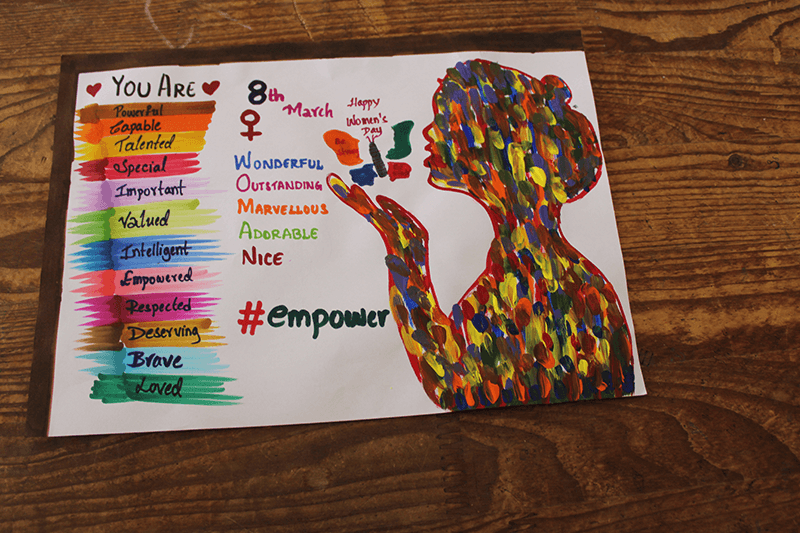 You Are
Powerful
Capable
Talented
Special
Important
Valued
Intelligent
Empowered
Respected
Deserving
Brave
Loved
8th
March
Happy
Women's
Day
Be
WONDERFUL
OUTSTANDING
MARVELLOUS
ADORABLE
NICE
#empower